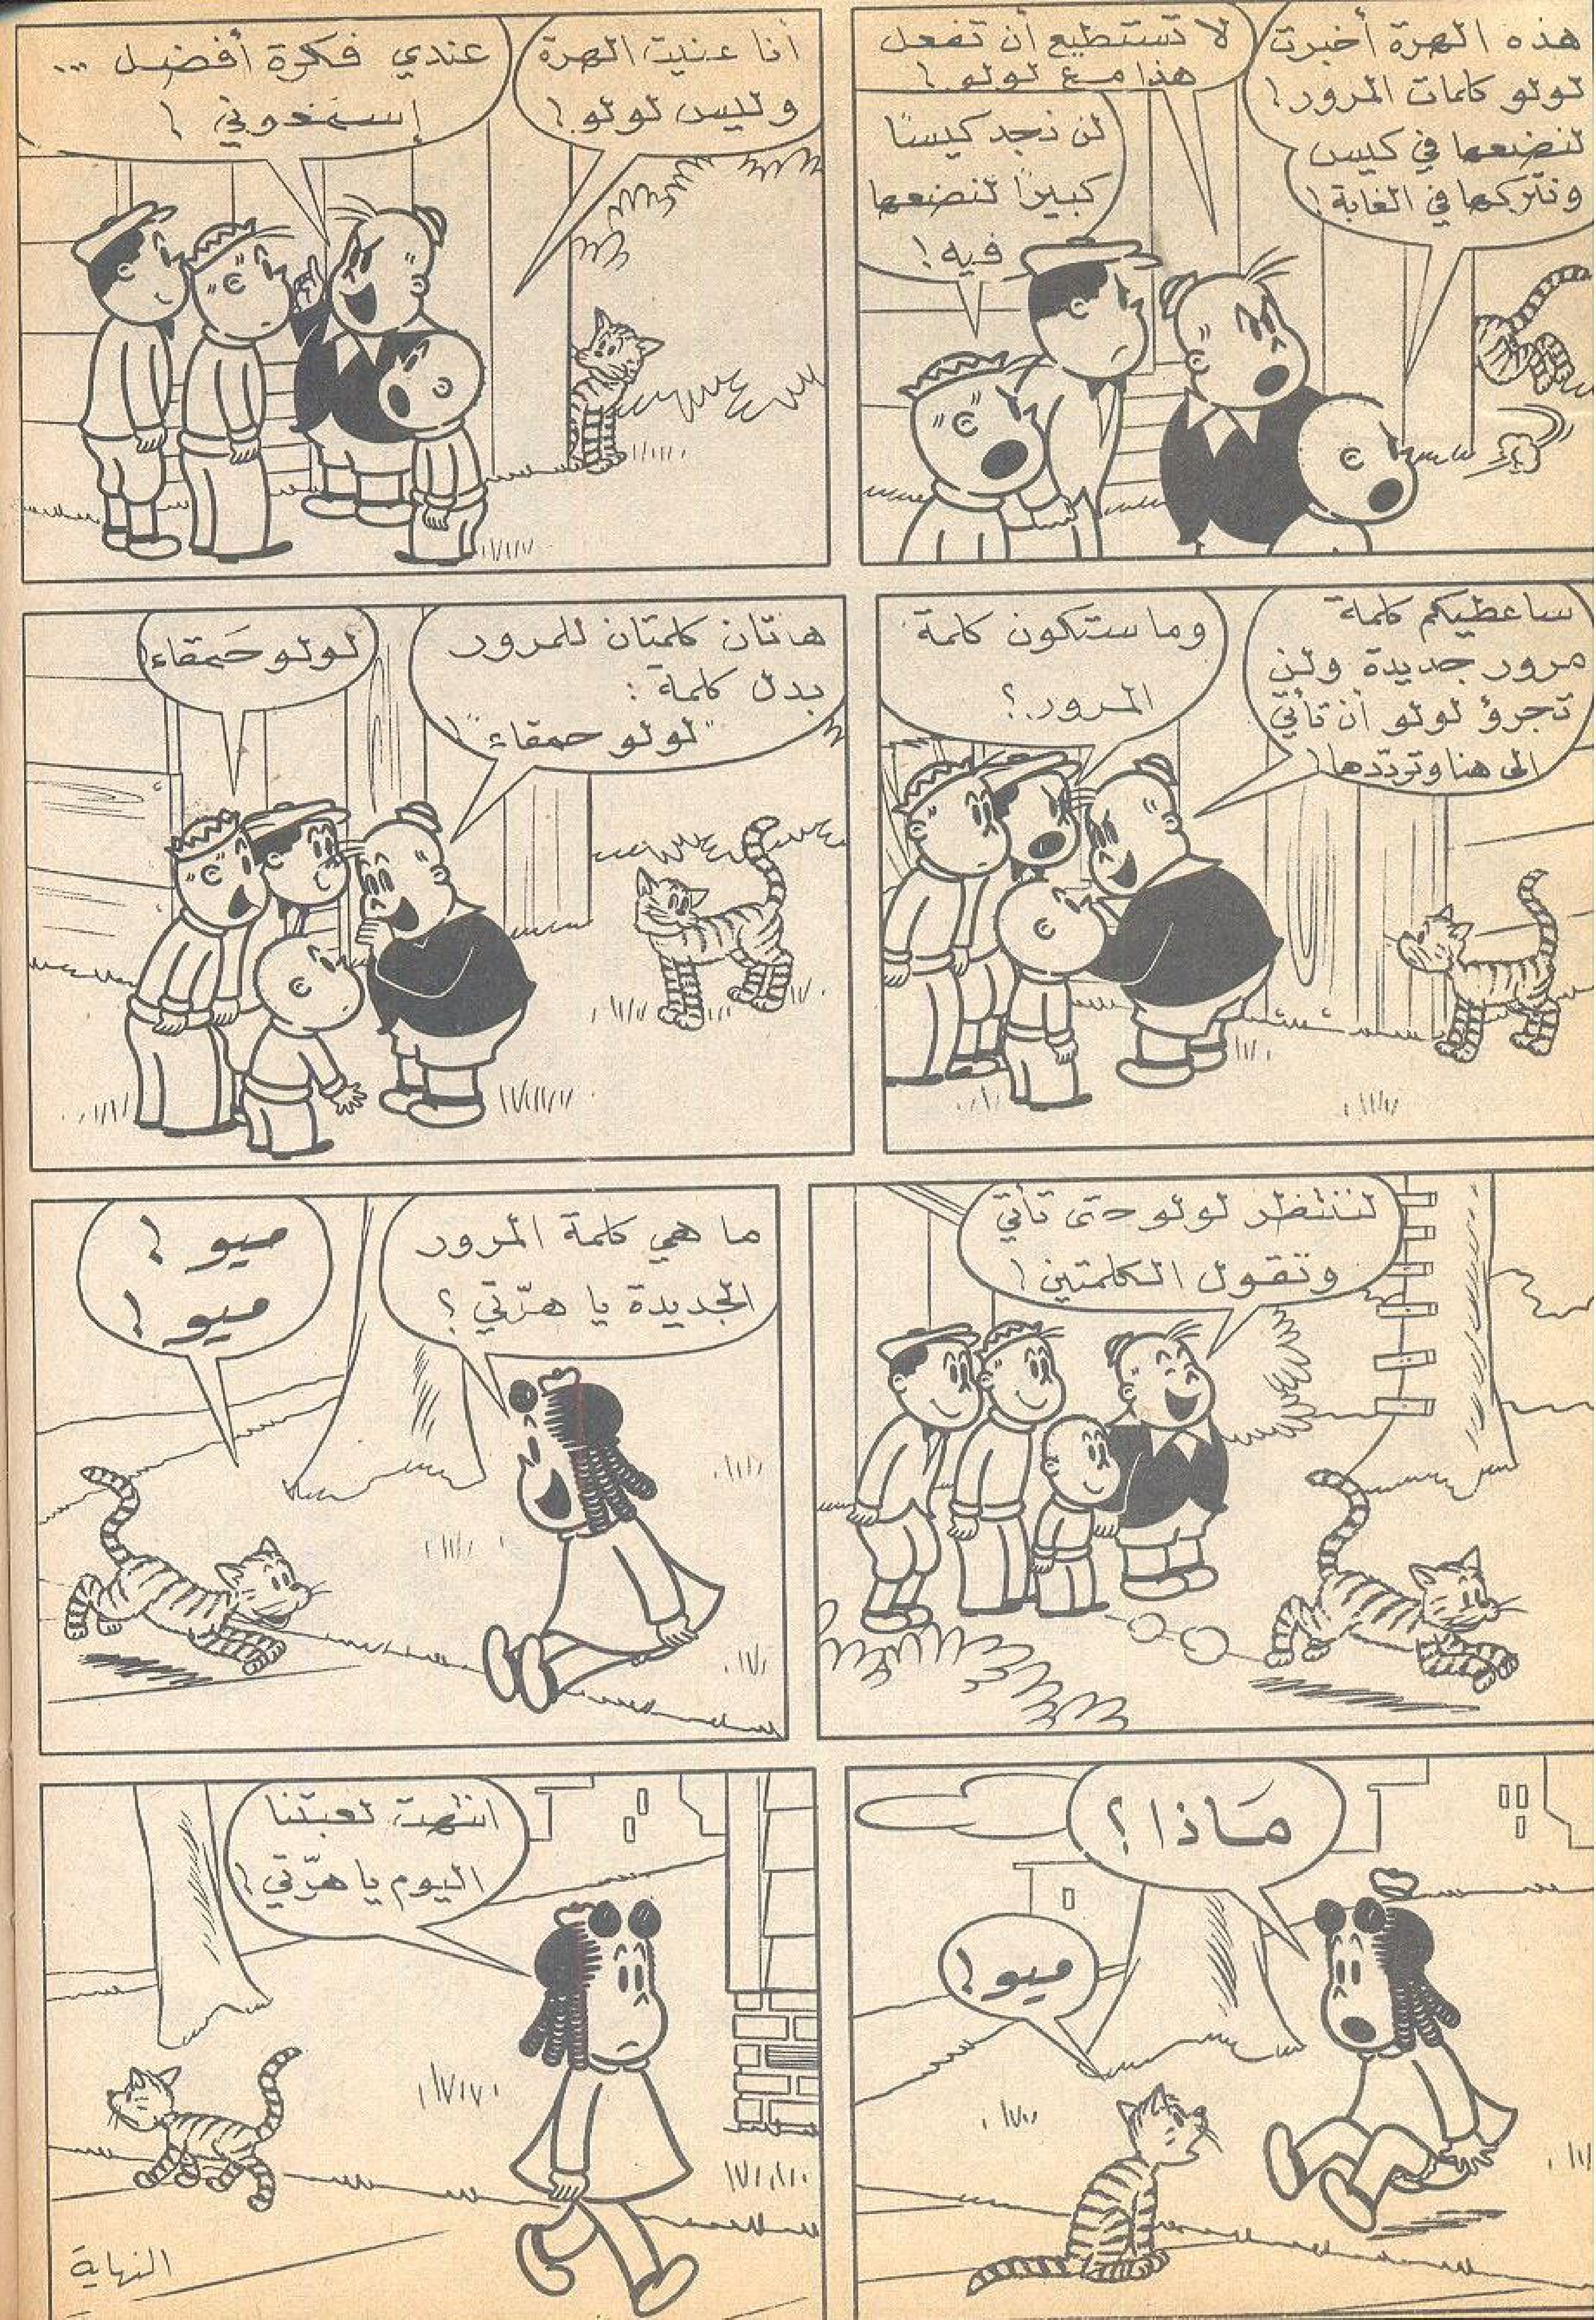 هذه الهرة أخبرت
لولو كلمات المرور!
لنضعها في كيس
ونتركها في الغابة!
لا تستطيع أن تفعل
هذا مع لولو!
لن نجد كيسًا
كبيرًا لنضعها
فيه!
أنا عنيت الهرة
وليس لولو!
عندي فكرة أفضل ...
إسمعوني!
ساعطيكم كلمة
مرور جديدة ولن
تجرؤ لولو أن تأتي
الى هنا وتردّدها!
وما ستكون كلمة
المرور؟
هاتان كلمتان للمرور
بدل كلمة :
"لولو حمقاء"!
لولو حَمقاء!
لننتظر لولو حتى تأتي
وتقول الكلمتين!
ما هي كلمة المرور
الجديدة يا هرّتي؟
ميو!
ميو!
مَاذا؟
ميو!
انتهت لعبتنا
اليوم يا هرّتي!
النهاية